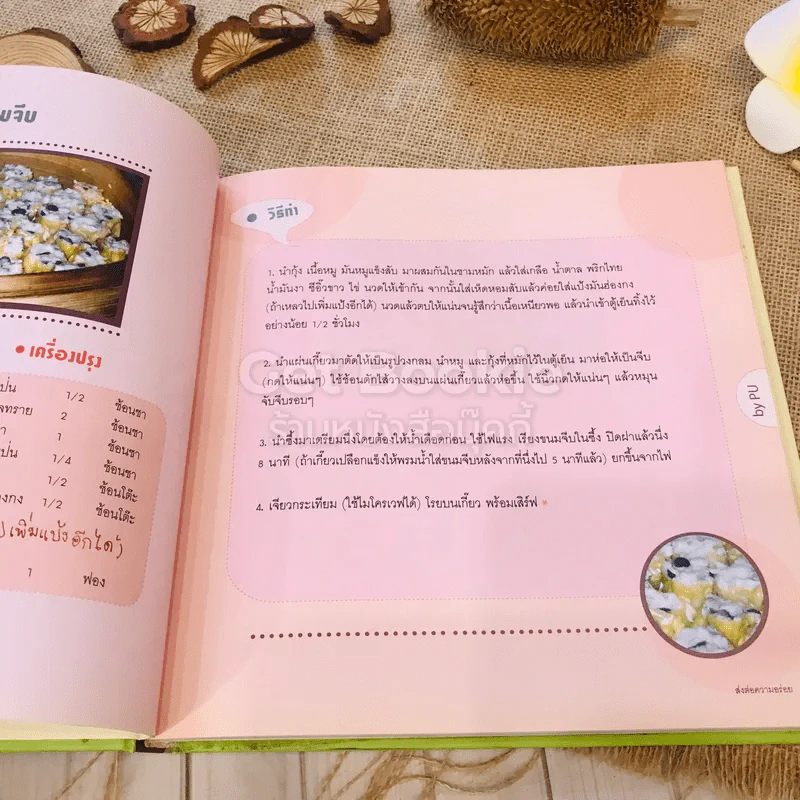 มจีบ
เครื่องปรุง
1/2 ช้อนชา
2 ช้อนชา
1 ช้อนชา
1/4 ช้อนชา
1/2 ช้อนโต๊ะ
1/2 ช้อนโต๊ะ
เพิ่มแป้งอีกได้)
1 ฟอง
วิธีทำ
1. นำกุ้ง เนื้อหมู มันหมูแข็งสับ มาผสมกันในชามหมัก แล้วใส่เกลือ น้ำตาล พริกไทย
น้ำมันงา ซีอิ๊วขาว ไข่ นวดให้เข้ากัน จากนั้นใส่เห็ดหอมสับแล้วค่อยใส่แป้งมันฮ่องกง
(ถ้าเหลวไปเพิ่มแป้งอีกได้) นวดแล้วตบให้แน่นจนรู้สึกว่าเนื้อเหนียวพอ แล้วนำเข้าตู้เย็นทิ้งไว้
อย่างน้อย 1/2 ชั่วโมง
2. นำแผ่นเกี๊ยวมาตัดให้เป็นรูปวงกลม นำหมู และกุ้งที่หมักไว้ในตู้เย็น มาห่อให้เป็นจีบ
(กดให้แน่นๆ) ใช้ช้อนตักไส้วางลงบนแผ่นเกี๊ยวแล้วห่อขึ้น ใช้นิ้วกดให้แน่นๆ แล้วหมุน
จับจีบรอบๆ
3. นำซึ้งมาเตรียมนึ่งโดยต้องให้น้ำเดือดก่อน ใช้ไฟแรง เรียงขนมจีบในซึ้ง ปิดฝาแล้วนึ่ง
8 นาที (ถ้าเกี๊ยวเปลือกแข็งให้พรมน้ำใส่ขนมจีบหลังจากที่นึ่งไป 5 นาทีแล้ว) ยกขึ้นจากไฟ
4. เจียวกระเทียม (ใช้ไมโครเวฟได้) โรยบนเกี๊ยว พร้อมเสิร์ฟ
by PU
ส่งต่อความอร่อย
Got Bookie
ร้านหนังสือบุ๊คกี้